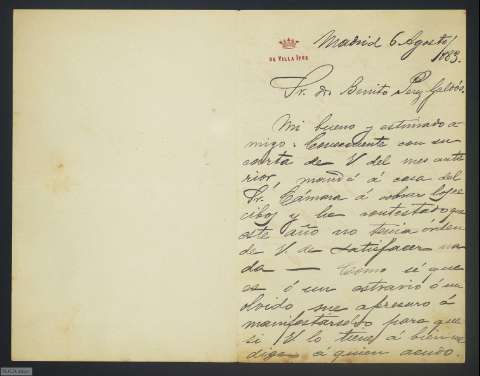 DE VILLA YPES
Madrid 6 Agosto/
1883.
Sr. Dn. Benito Perez Galdós.
Mi bueno y estimado a-
migo: Consecuente con su
carta de V del mes ante
rior, mandé á casa del
Sr. Cámara á cobrar los re
cibos y ha contestado que
este año no tenia órden
de V. de satisfacer na
da — Como sé que
es ó un estravio ó un
olvido me apresuro á
manifestárselo para que
si V lo tiene á bien me
diga á quien acudo.